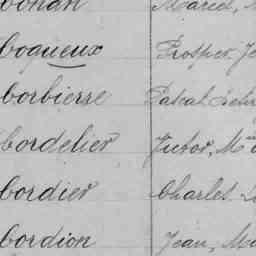 Conan Marcel,
Coqueux Prosper Je
Corbierre Pascal
Cordelier Victor, M
Cordier Charles
Cordion Jean, Ma